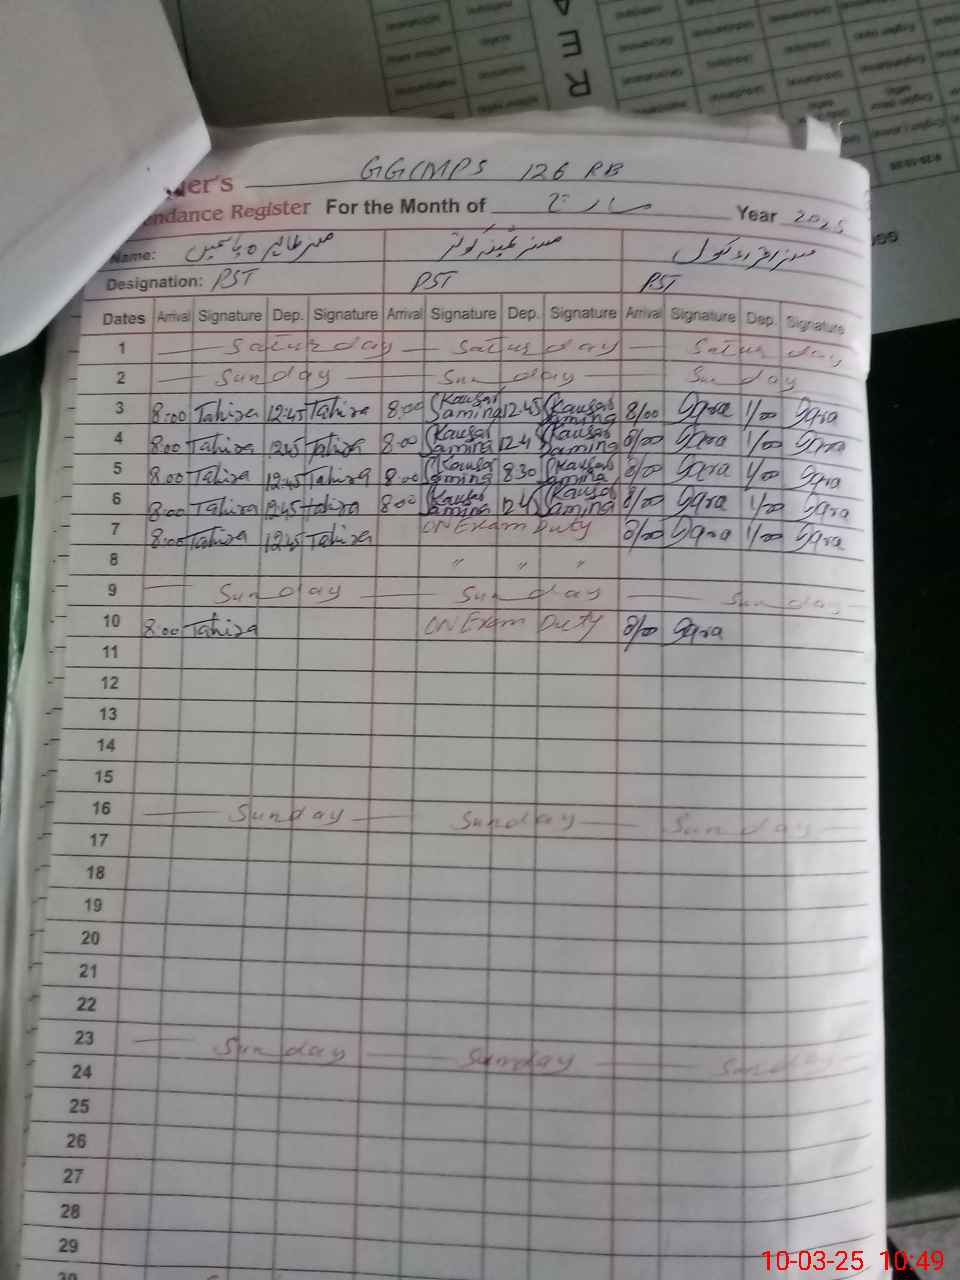 GGCMPS 126 RB
er's
endance Register For the Month of مارچ Year 2025
Name: مسز طاہرہ یاسمین مسز ثمینہ کوثر مسز اقراء بتول
Designation: PST PST PST
Dates Arrival Signature Dep. Signature Arrival Signature Dep. Signature Arrival Signature Dep. Signature
1 Saturday Saturday Saturday
2 Sunday Sunday Sunday
3 8:00 Tahira 12:45 Tahira 8:00 Kausar Samina 12:45 Kausar Samina 8/00 Iqra 1/00 Iqra
4 8:00 Tahira 12:45 Tahira 8:00 Kausar Samina 12:4 Kausar Samina 8/00 Iqra 1/00 Iqra
5 8:00 Tahira 12:45 Tahira 8:00 Kausar Samina 8:30 Kausar Samina 8/00 Iqra 1/00 Iqra
6 8:00 Tahira 12:45 Tahira 8:00 Kausar Samina 12:45 Kausar Samina 8/00 Iqra 1/00 Iqra
7 8:00 Tahira 12:45 Tahira ON Exam Duty 8/00 Iqra 1/00 Iqra
8 " " "
9 Sunday Sunday Sunday
10 8:00 Tahira ON Exam Duty 8/00 Iqra
11
12
13
14
15
16 Sunday Sunday Sunday
17
18
19
20
21
22
23 Sunday Sunday Sunday
24
25
26
27
28
29
30
10-03-25 10:49